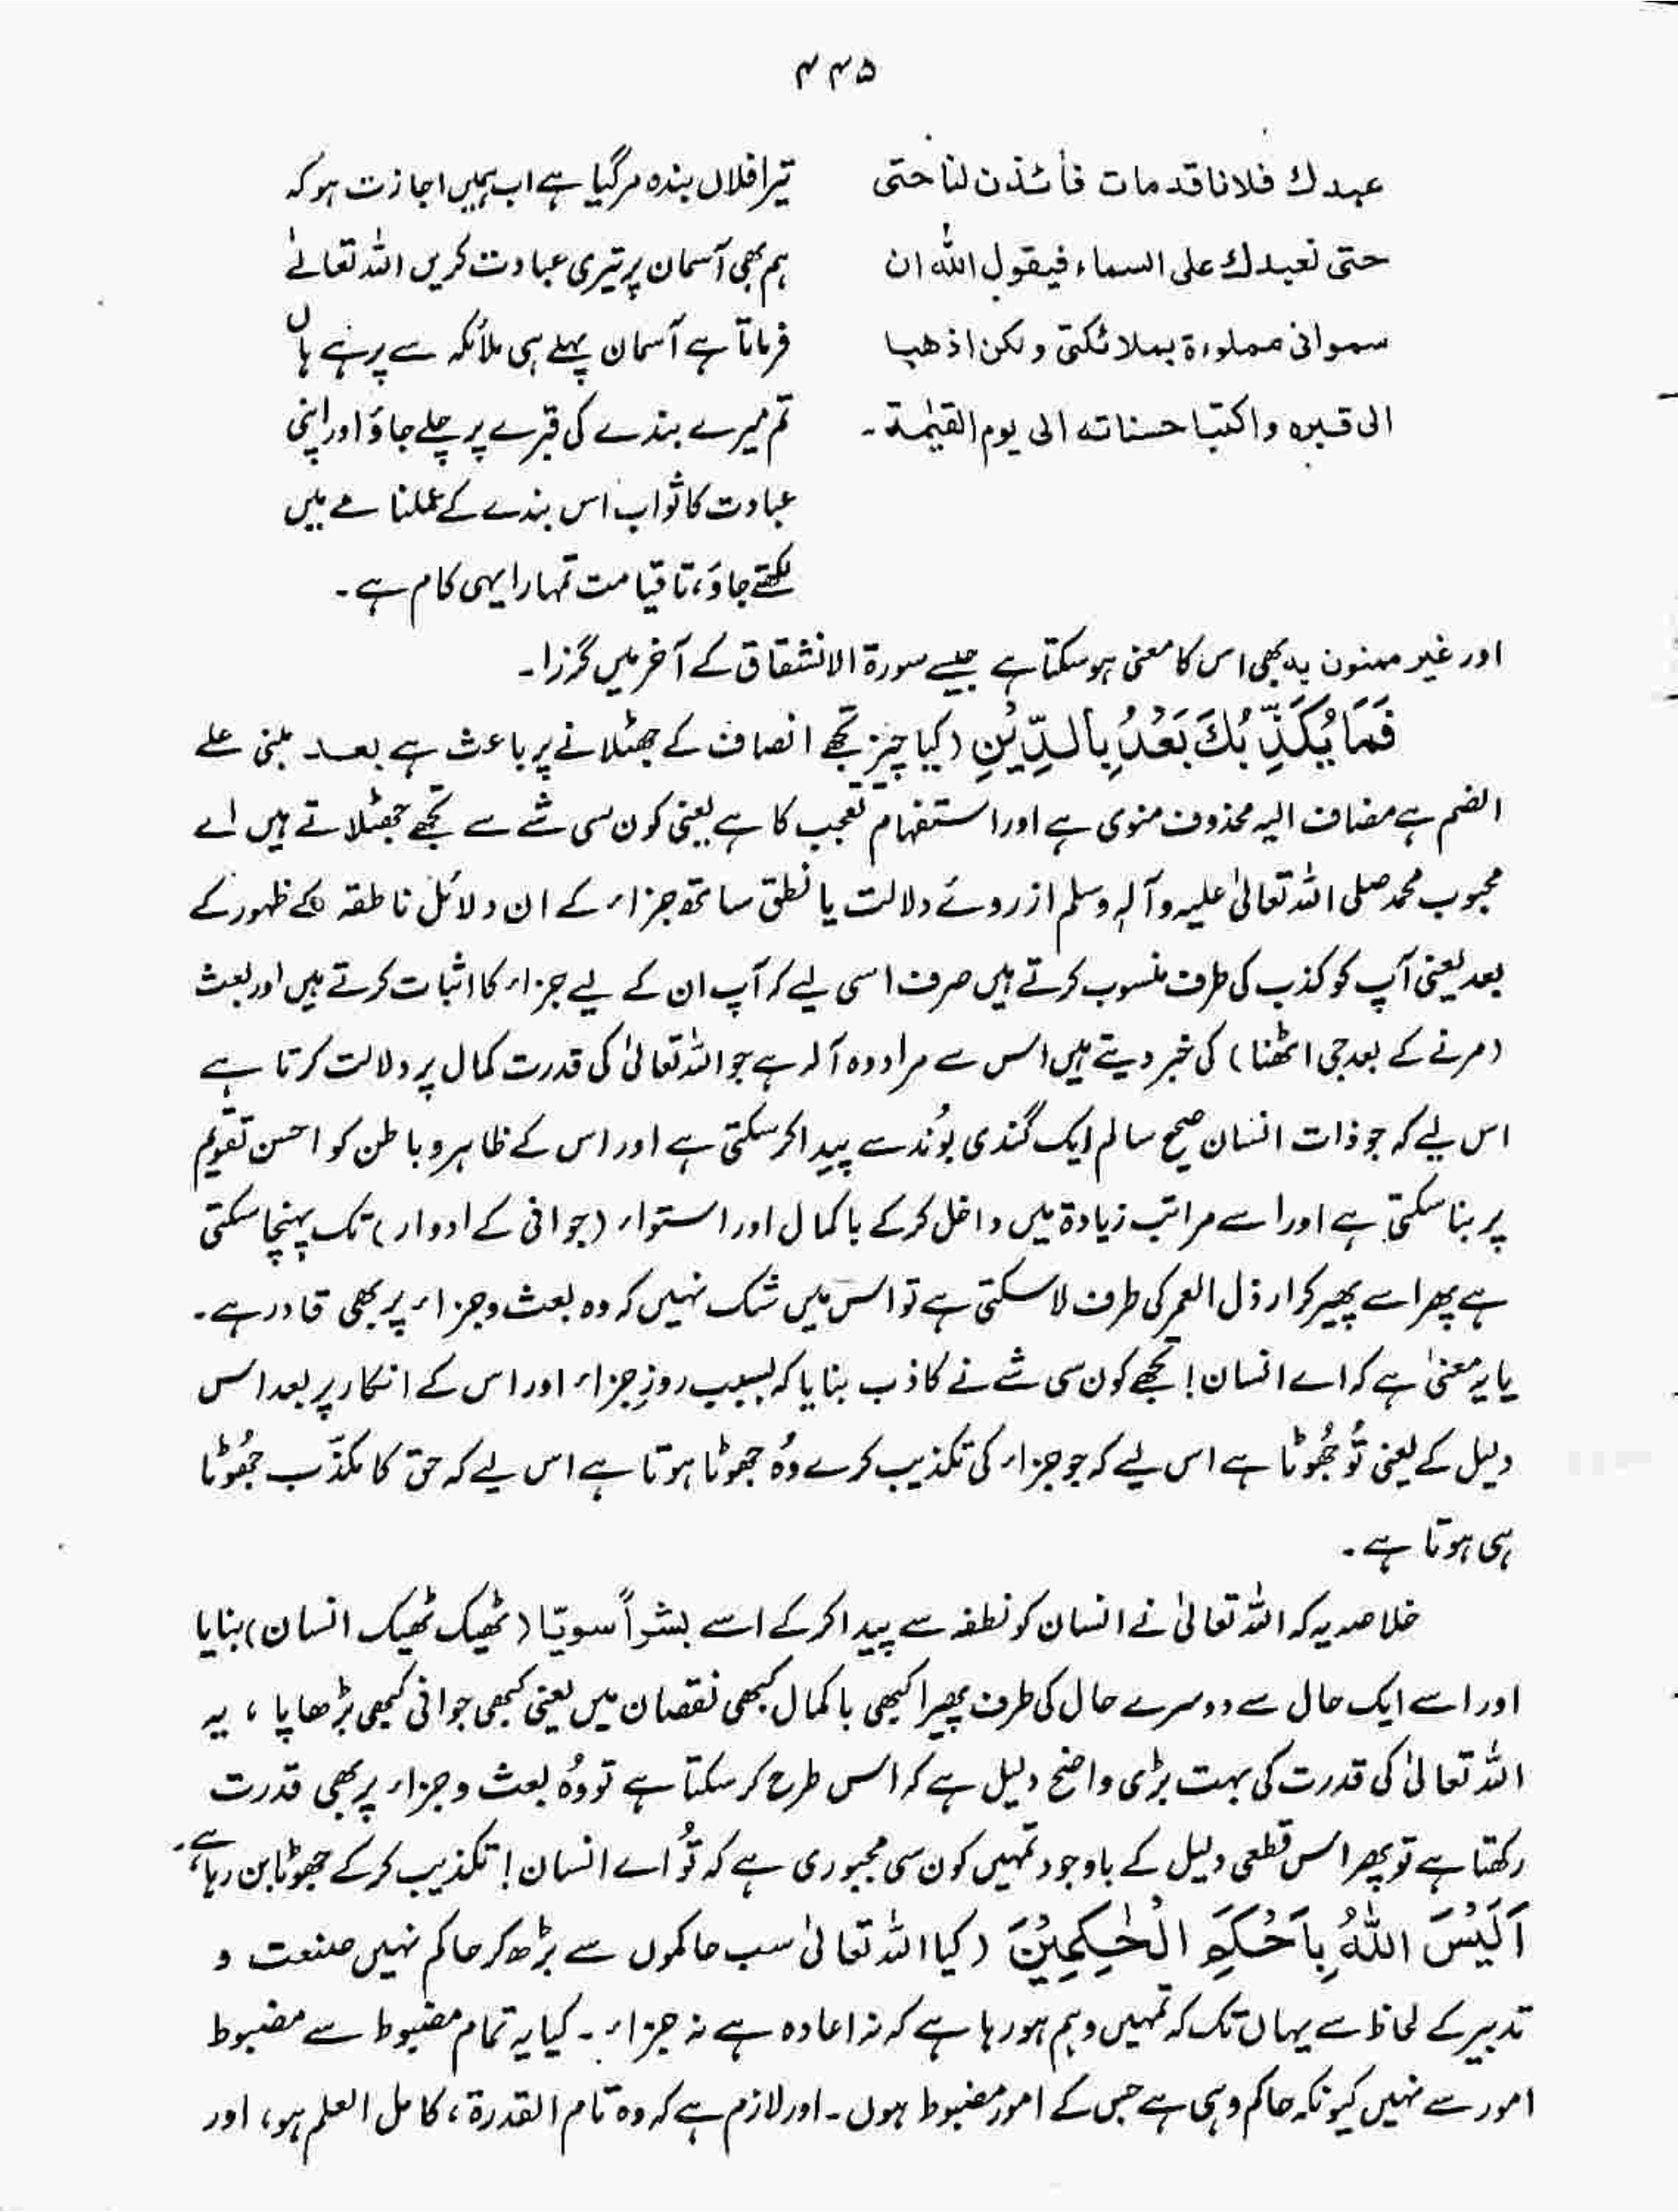 ۴۴۵
عبدك فلانا قد مات فأئذن لنا حتى
حتى نعبدك على السماء فيقول الله ان
سمواتى مملوءة بملائكتى ولكن اذهبا
الى قبره واكتبا حسناته الى يوم القيٰمة۔
تیرا فلاں بندہ مرگیا ہے اب ہمیں اجازت ہو کہ
ہم بھی آسمان پر تیری عبادت کریں اللہ تعالےٰ
فرماتا ہے آسمان پہلے ہی ملائکہ سے پر ہے ہاں
تم میرے بندے کی قبرے پر چلے جاؤ اور اپنی
عبادت کا ثواب اس بندے کے عملنامے میں
لکھتے جاؤ، تا قیامت تمہارا یہی کام ہے۔
اور غیر ممنون یہ بھی اس کا معنی ہوسکتا ہے جیسے سورة الانشقاق کے آخر میں گزرا۔
فَمَا يُكَذِّبُكَ بَعْدُ بِالدِّيْنِ (کیا چیز تجھے انصاف کے جھٹلانے پر باعث ہے بعد مبنی علے
الضم ہے مضاف الیہ محذوف منوی ہے اور استفہام تعجب کا ہے یعنی کون سی شے سے تجھے جھٹلاتے ہیں اے
محبوب محمد صلی اللہ تعالیٰ علیہ وآلہ وسلم از روئے دلالت یا نطق ساتھ جزاء کے ان دلائل ناطقہ کے ظہور کے
بعد یعنی آپ کو کذب کی طرف منسوب کرتے ہیں صرف اسی لیے کہ آپ ان کے لیے جزاء کا اثبات کرتے ہیں اور بعث
(مرنے کے بعد جی اٹھنا) کی خبر دیتے ہیں اس سے مراد وہ آلہ ہے جو اللہ تعالیٰ کی قدرت کمال پر دلالت کرتا ہے
اس لیے کہ جو ذات انسان صحیح سالم ایک گندی بُوند سے پیدا کرسکتی ہے اور اس کے ظاہر و باطن کو احسن تقویم
پر بنا سکتی ہے اور اسے مراتب زیادة میں داخل کرکے باکمال اور استواء (جوانی کے ادوار) تک پہنچا سکتی
ہے پھر اسے پھیر کر ارذل العمر کی طرف لاسکتی ہے تو اس میں شک نہیں کہ وہ بعث و جزاء پر بھی قادر ہے۔
یا یہ معنیٰ ہے کہ اے انسان! تجھے کون سی شے نے کاذب بنایا کہ بسبب روزِ جزاء اور اس کے انکار پر بعد اس
دلیل کے یعنی تُو جُھوٹا ہے اس لیے کہ جو جزاء کی تکذیب کرے وُہ جھوٹا ہوتا ہے اس لیے کہ حق کا مکذّب جُھوٹا
ہی ہوتا ہے۔
خلاصہ یہ کہ اللہ تعالیٰ نے انسان کو نطفہ سے پیدا کرکے اسے بشراً سویّا (ٹھیک ٹھیک انسان) بنایا
اور اسے ایک حال سے دوسرے حال کی طرف پھیرا کبھی باکمال کبھی نقصان میں یعنی کبھی جوانی کبھی بڑھاپا، یہ
اللہ تعالیٰ کی قدرت کی بہت بڑی واضح دلیل ہے کہ اس طرح کرسکتا ہے تو وُہ بعث و جزاء پر بھی قدرت
رکھتا ہے تو پھر اس قطعی دلیل کے باوجود تمہیں کون سی مجبوری ہے کہ تُو اے انسان! تکذیب کرکے جھوٹا بن رہا ہے۔
اَلَيْسَ اللّٰهُ بِاَحْكَمِ الْحٰكِمِيْنَ (کیا اللہ تعالیٰ سب حاکموں سے بڑھ کر حاکم نہیں صنعت و
تدبیر کے لحاظ سے یہاں تک کہ تمہیں وہم ہو رہا ہے کہ نہ اعادہ ہے نہ جزاء۔ کیا یہ تمام مضبوط سے مضبوط
امور سے نہیں کیونکہ حاکم وہی ہے جس کے امور مضبوط ہوں۔ اور لازم ہے کہ وہ تام القدرة، کامل العلم ہو، اور